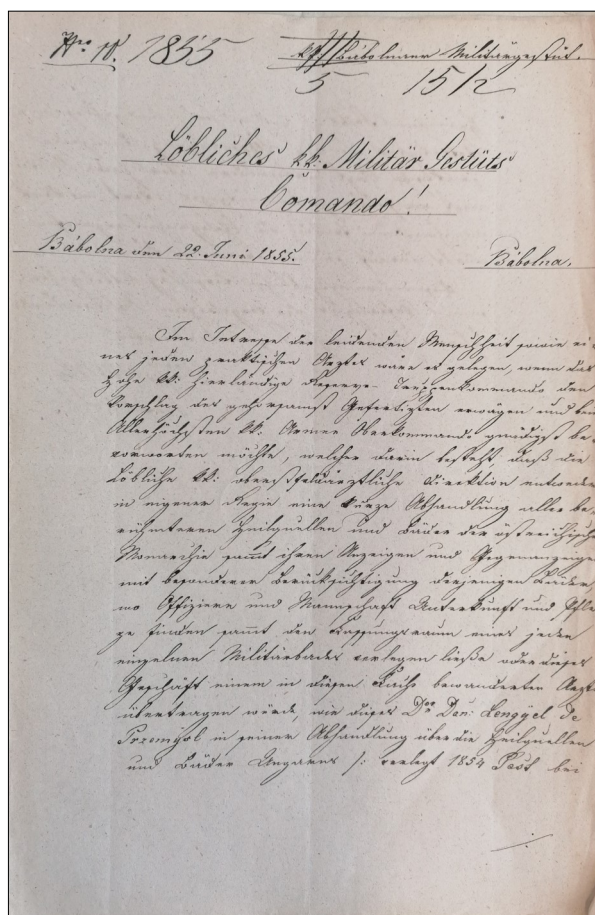 Nro 10. 1855 Bábolnaer Militärgestüt.
5 15/2
Löbliches kk: Militär Gestüts
Comando!
Bábolna den 20. Juni 1855. Bábolna.
Im Interesse der leidenden Menschheit sowie ei-
nes jeden praktischen Arztes wäre es gelegen, wenn das
Hohe kk: hierländige Reserve- Truppenkommando den
Vorschlag des gehorsamst Gefertigten erwägen und beim
Allerhöchsten kk. Armee Oberkommando gnädigst be-
vorworten möchte, welcher darin besteht, daß die
Löbliche kk: oberstfeldärztliche Direktion entweder
in eigener Regie eine kurze Abhandlung aller be-
rühmteren Heilquellen und Bäder der österreichischen
Monarchie sammt ihren Anzeigen und Gegenanzeigen
mit besonderer Berücksichtigung derjenigen Bäder,
wo Offiziere und Mannschaft Unterkunft und Pfle-
ge finden sammt den Fassungsraum eines jeden
einzelnen Militärbades verlegen ließe oder dieses
Geschäft einem in diesem Fache bewanderten Arzte
übertragen würde, wie dieses Dor Dan: Lengyel de
Przemysl in seiner Abhandlung über die Heilquellen
und Bäder Ungarns /: verlegt 1854 Pest bei